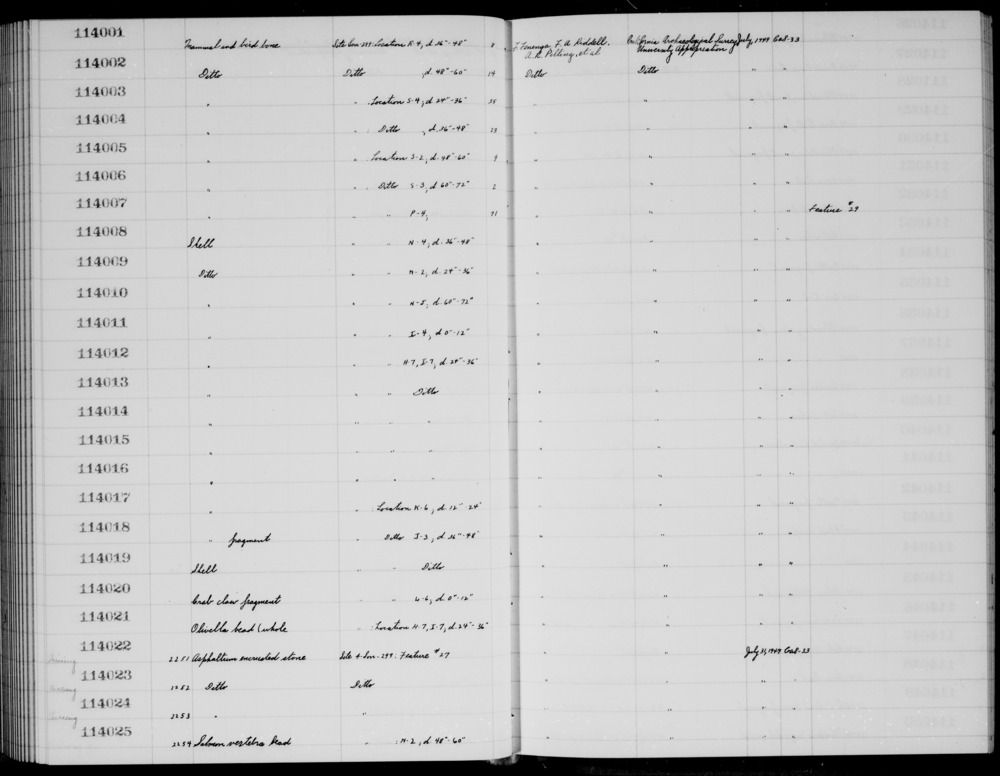 114001
Mammal and bird bone Site Son 299: Location R-4, d. 36"-48" 8 F. Fenenga, F. A. Riddell, California Archaeological Survey July, 1949 Cat-23
A. R. Pilling, et al University Appropriation
114002
Ditto Ditto , d. 48"-60" 14 Ditto Ditto " "
114003
" " Location S-4, d. 24"-36" 35 " " " "
114004
" " Ditto , d. 36"-48" 23 " " " "
114005
" " Location S-2, d. 48"-60" 9 " " " "
114006
" " Ditto S-3, d. 60"-72" 2 " " " "
114007
" " " P-4, 71 " " " " Feature #29
114008
Shell " " N-4, d. 36"-48" " " " "
114009
Ditto " " M-2, d. 24"-36" " " " "
114010
" " " N-5, d. 60"-72" " " " "
114011
" " " I-4, d. 0"-12" " " " "
114012
" " " H-7, I-7, d. 24"-36" " " " "
114013
" " " Ditto " " " "
114014
" " " " " " " "
114015
" " " " " " " "
114016
" " " " " " " "
114017
" " Location K-6, d. 12"-24" " " " "
114018
" fragment " Ditto I-3, d. 36"-48" " " " "
114019
Shell " " Ditto " " " "
114020
Crab claw fragment " " d. 0"-12" " " " "
114021
Olivella bead (whole " Location H-7, I-7, d. 24"-36" " " " "
114022
2251 Asphaltum encrusted stone Site 4-Son-299: Feature #27 " " July 11, 1949 Cat-23
114023
2252 Ditto Ditto " " " "
114024
2253 " " " " " "
114025
2254 Salmon vertebra bead " : M-2, d. 48"-60" " " " "